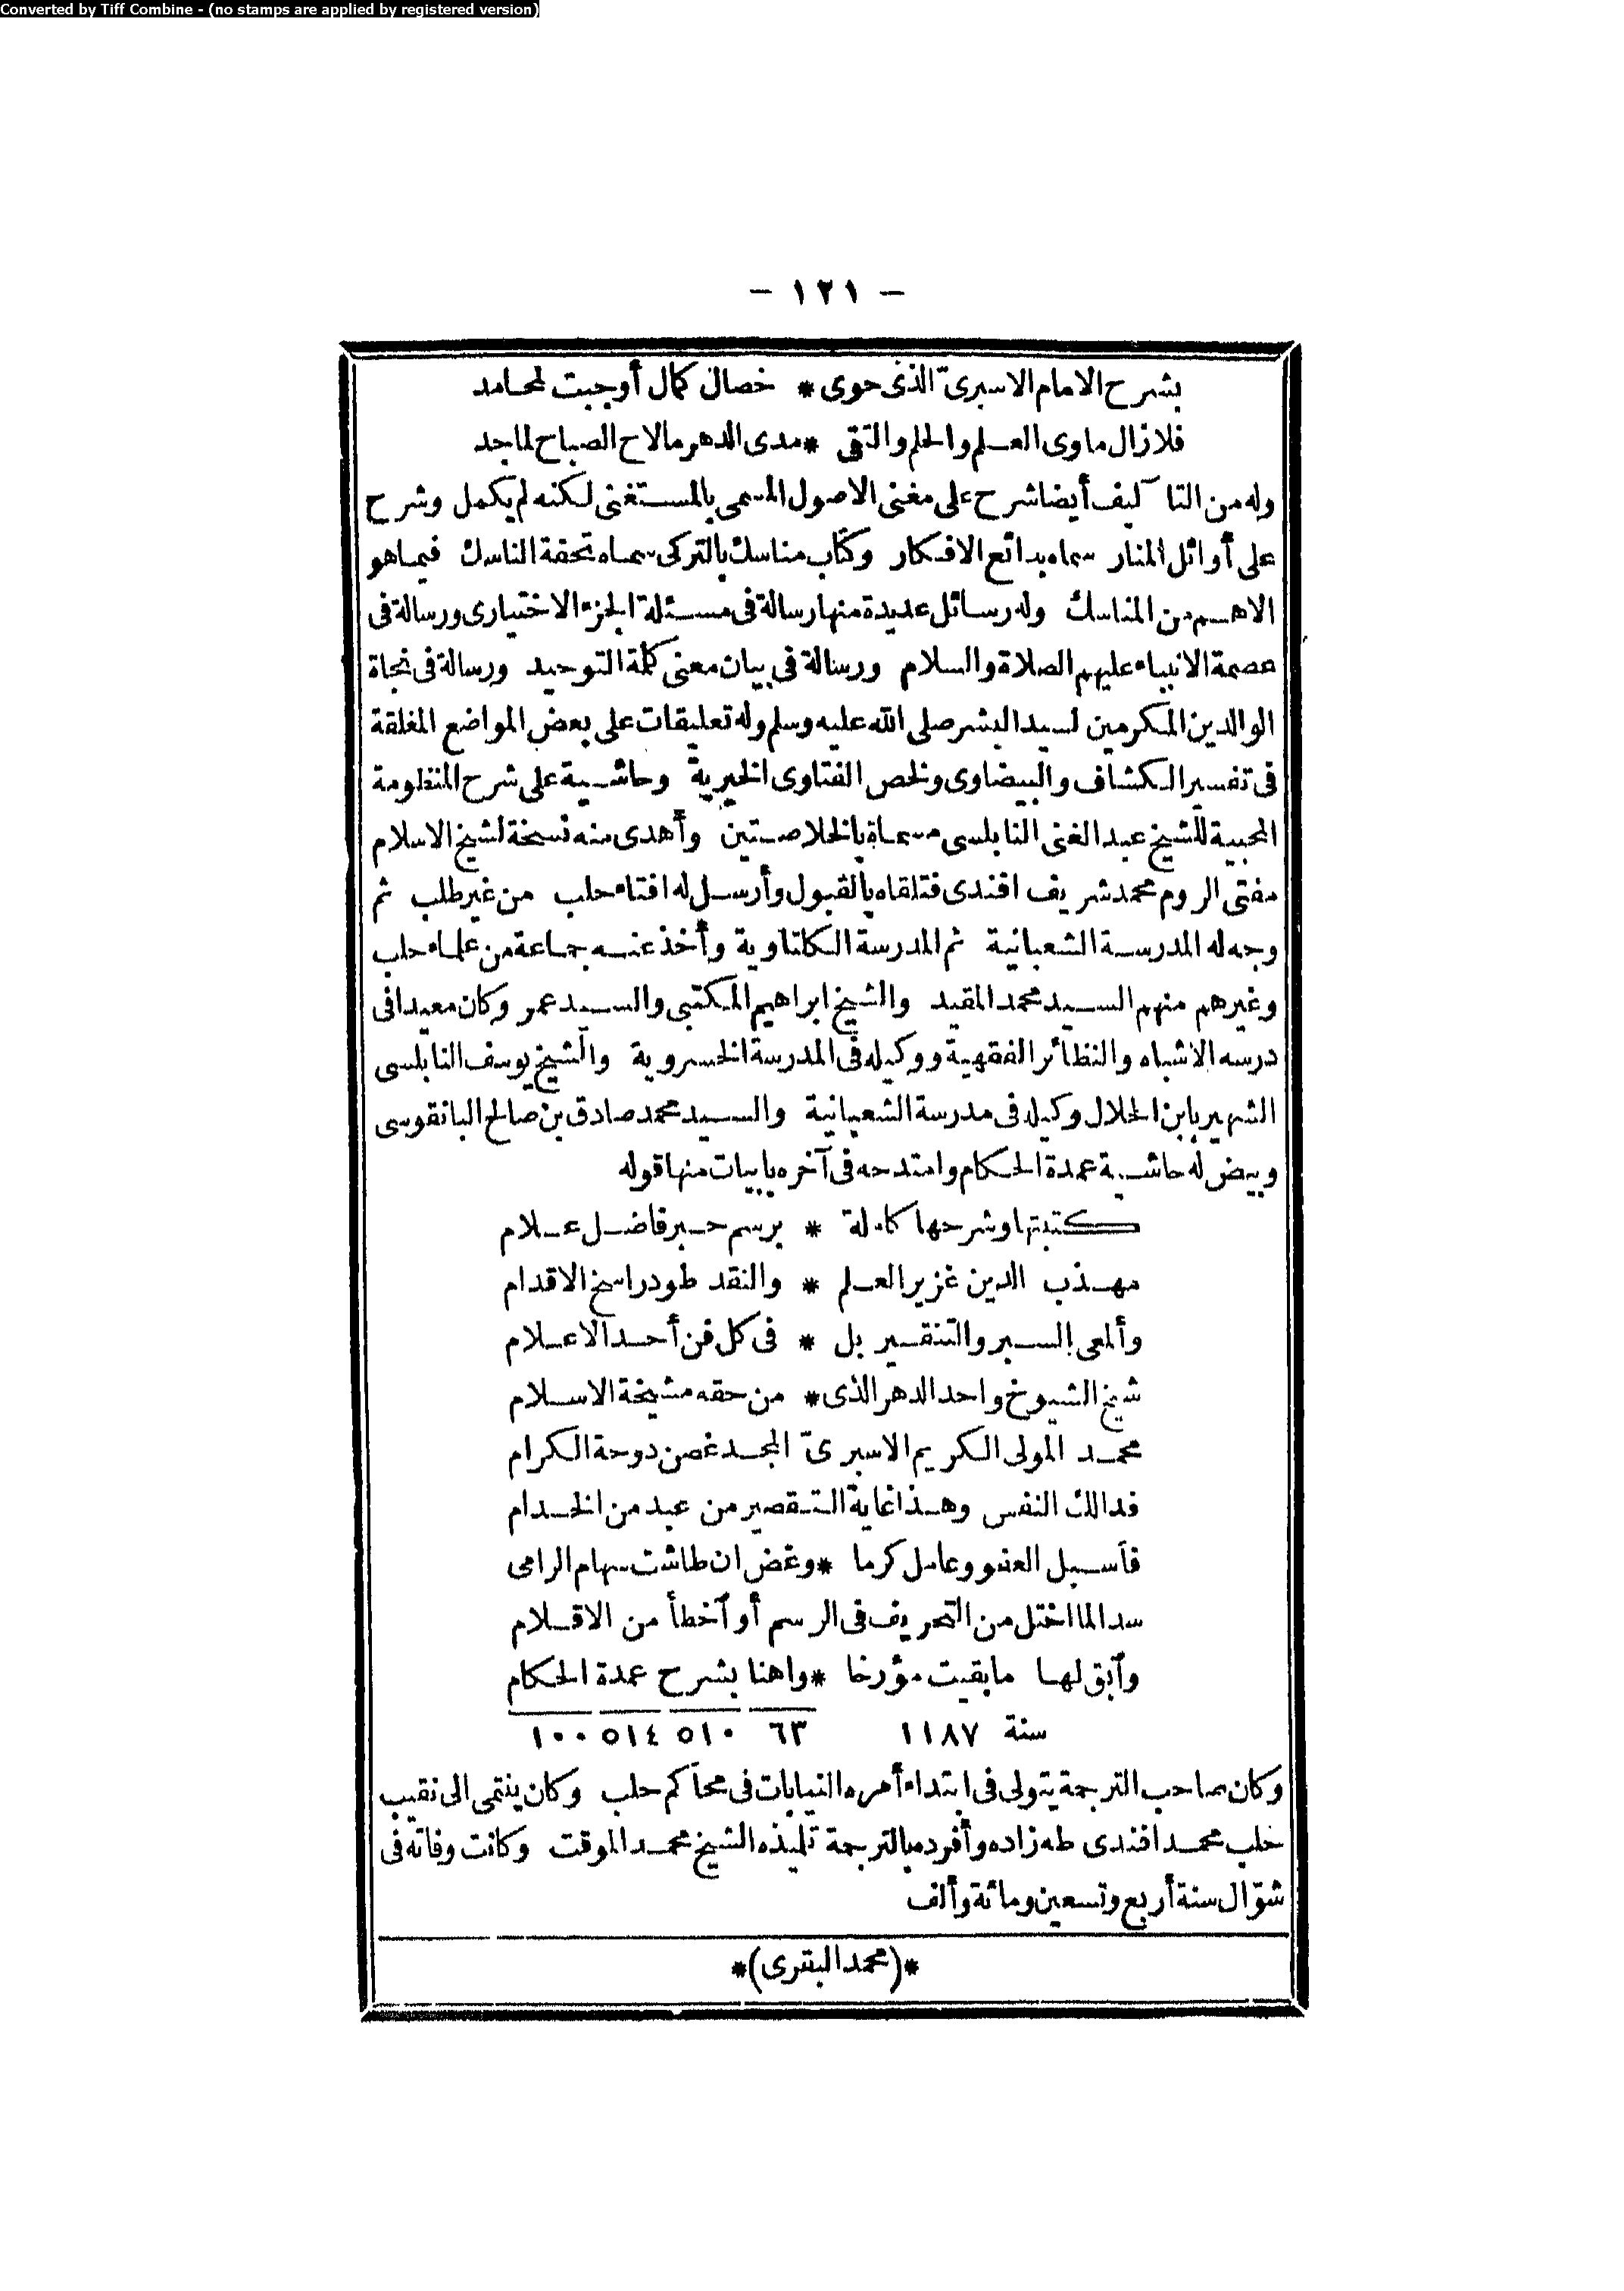 Converted by Tiff Combine - (no stamps are applied by registered version)
— ١٢١ —
بشرح الامام الاسبرىّ الذى حوى * خصال كمال أوجبت لمحامد
فلا زال ماوى العلم والحلم والتقى * مدى الدهر ما لاح الصباح لماجد
وله من التآليف أيضا شرح على مغنى الاصول المسمى بالمستغنى لكنه لم يكمل وشرح
على أوائل المنار سماه بدائع الافكار وكتاب مناسك بالتركى سماه تحفة الناسك فيما هو
الاهم من المناسك وله رسائل عديدة منها رسالة فى مسئلة الجزء الاختيارى ورسالة فى
عصمة الانبياء عليهم الصلاة والسلام ورسالة فى بيان معنى كلمة التوحيد ورسالة فى نجاة
الوالدين المكرمين لسيد البشر صلى الله عليه وسلم وله تعليقات على بعض المواضع المغلقة
فى تفسير الكشاف والبيضاوى ولخص الفتاوى الخيرية وحاشية على شرح المنظومة
المحبية للشيخ عبد الغنى النابلسى مسماة بالخلاصتين وأهدى منه نسخة لشيخ الاسلام
مفتى الروم محمد شريف افندى فتلقاه بالقبول وأرسل له افتاء حلب من غير طلب ثم
وجه له المدرسة الشعبانية ثم المدرسة الكلتاوية وأخذ عنه جماعة من علماء حلب
وغيرهم منهم السيد محمد المقيد والشيخ ابراهيم المكتبى والسيد عمر وكان معيدا فى
درسه الاشباه والنظائر الفقهية ووكيله فى المدرسة الخسروية والشيخ يوسف النابلسى
الشهير بابن الحلال وكيله فى مدرسة الشعبانية والسيد محمد صادق بن صالح البانقوسى
وبيض له حاشية عمدة الحكام وامتدحه فى آخره بابيات منها قوله
كتبتها وشرحها كاملة * برسم حبر فاضل علام
مهذب الدين غزير العلم * والنقد طود راسخ الاقدام
وألمعى السبر والتنقير بل * فى كل فن أحد الاعلام
شيخ الشيوخ واحد الدهر الذى * من حقه مشيخة الاسلام
محمد المولى الكريم الاسبرىّ المجد غصن دوحة الكرام
فدالك النفس وهذا غاية التقصير من عبد من الخدام
فأسبل العفو وعامل كرما * وغض ان طاشت سهام الرامى
سدالما اختل من التحريف فى الرسم أو أخطأ من الاقلام
وآبق لها ما بقيت مؤرخا * واهنا بشرح عمدة الحكام
سنة ١١٨٧ ٦٣ ٥١٠ ٥١٤ ١٠٠
وكان صاحب الترجمة يتولى فى ابتداء أمره النيابات فى محاكم حلب وكان ينتمى الى نقيب
حلب محمد افندى طه زاده وأفرده بالترجمة تلميذه الشيخ محمد الموقت وكانت وفاته فى
شوّال سنة أربع وتسعين ومائة وألف
*(محمد البقرى)*